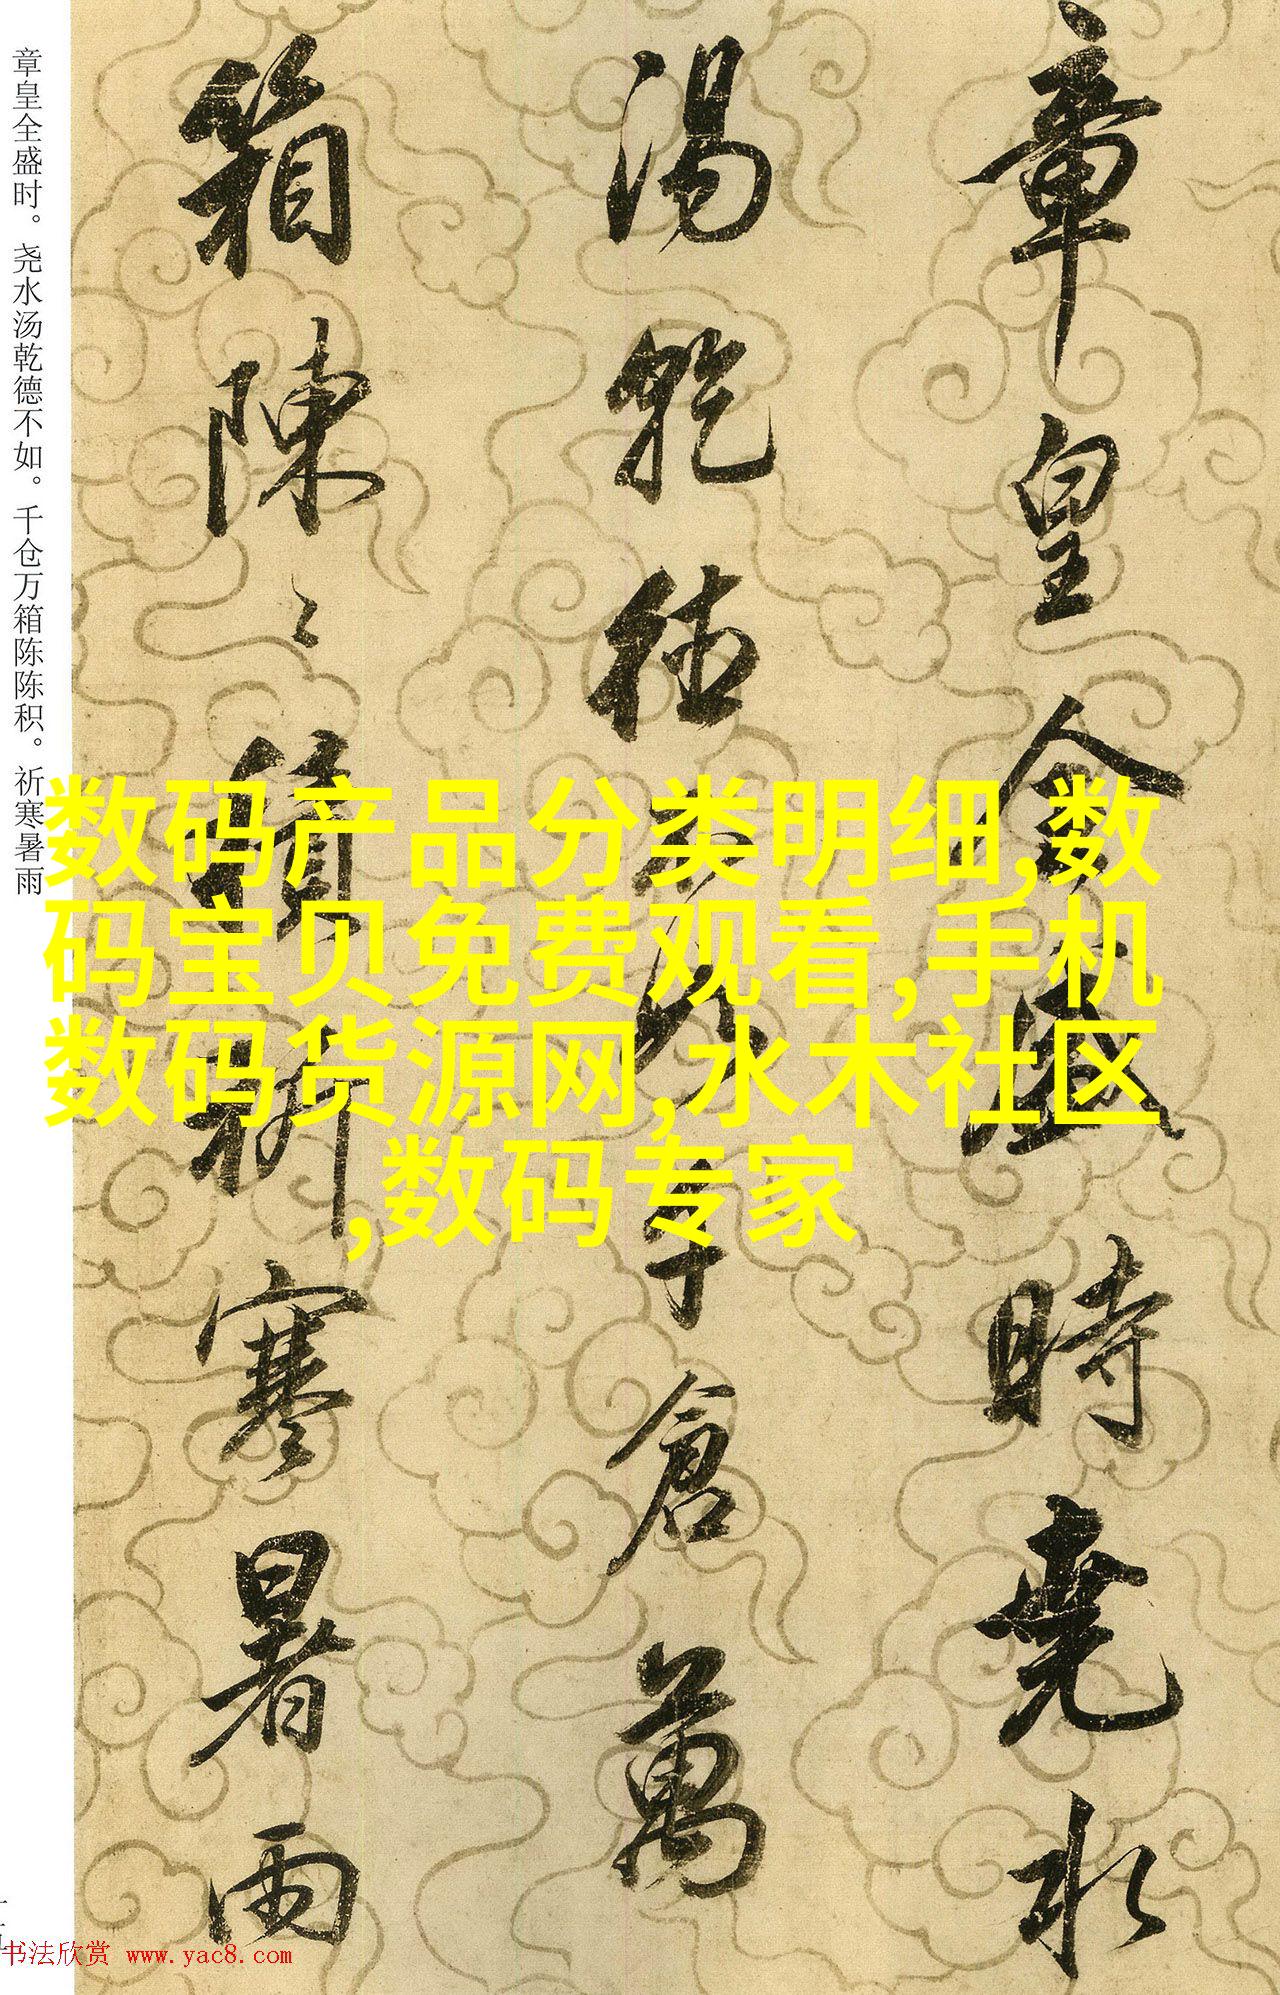 章皇全盛時堯水
湯乾德不如千倉萬
箱陳〻積祈寒暑雨
章皇全盛时。尧水汤乾德不如。千仓万箱陈陈积。祈寒暑雨
数码产品分类明细,数
码宝贝免费观看,手机
数码货源网,水木社区
,数码专家
书法欣赏 www.yac8.com